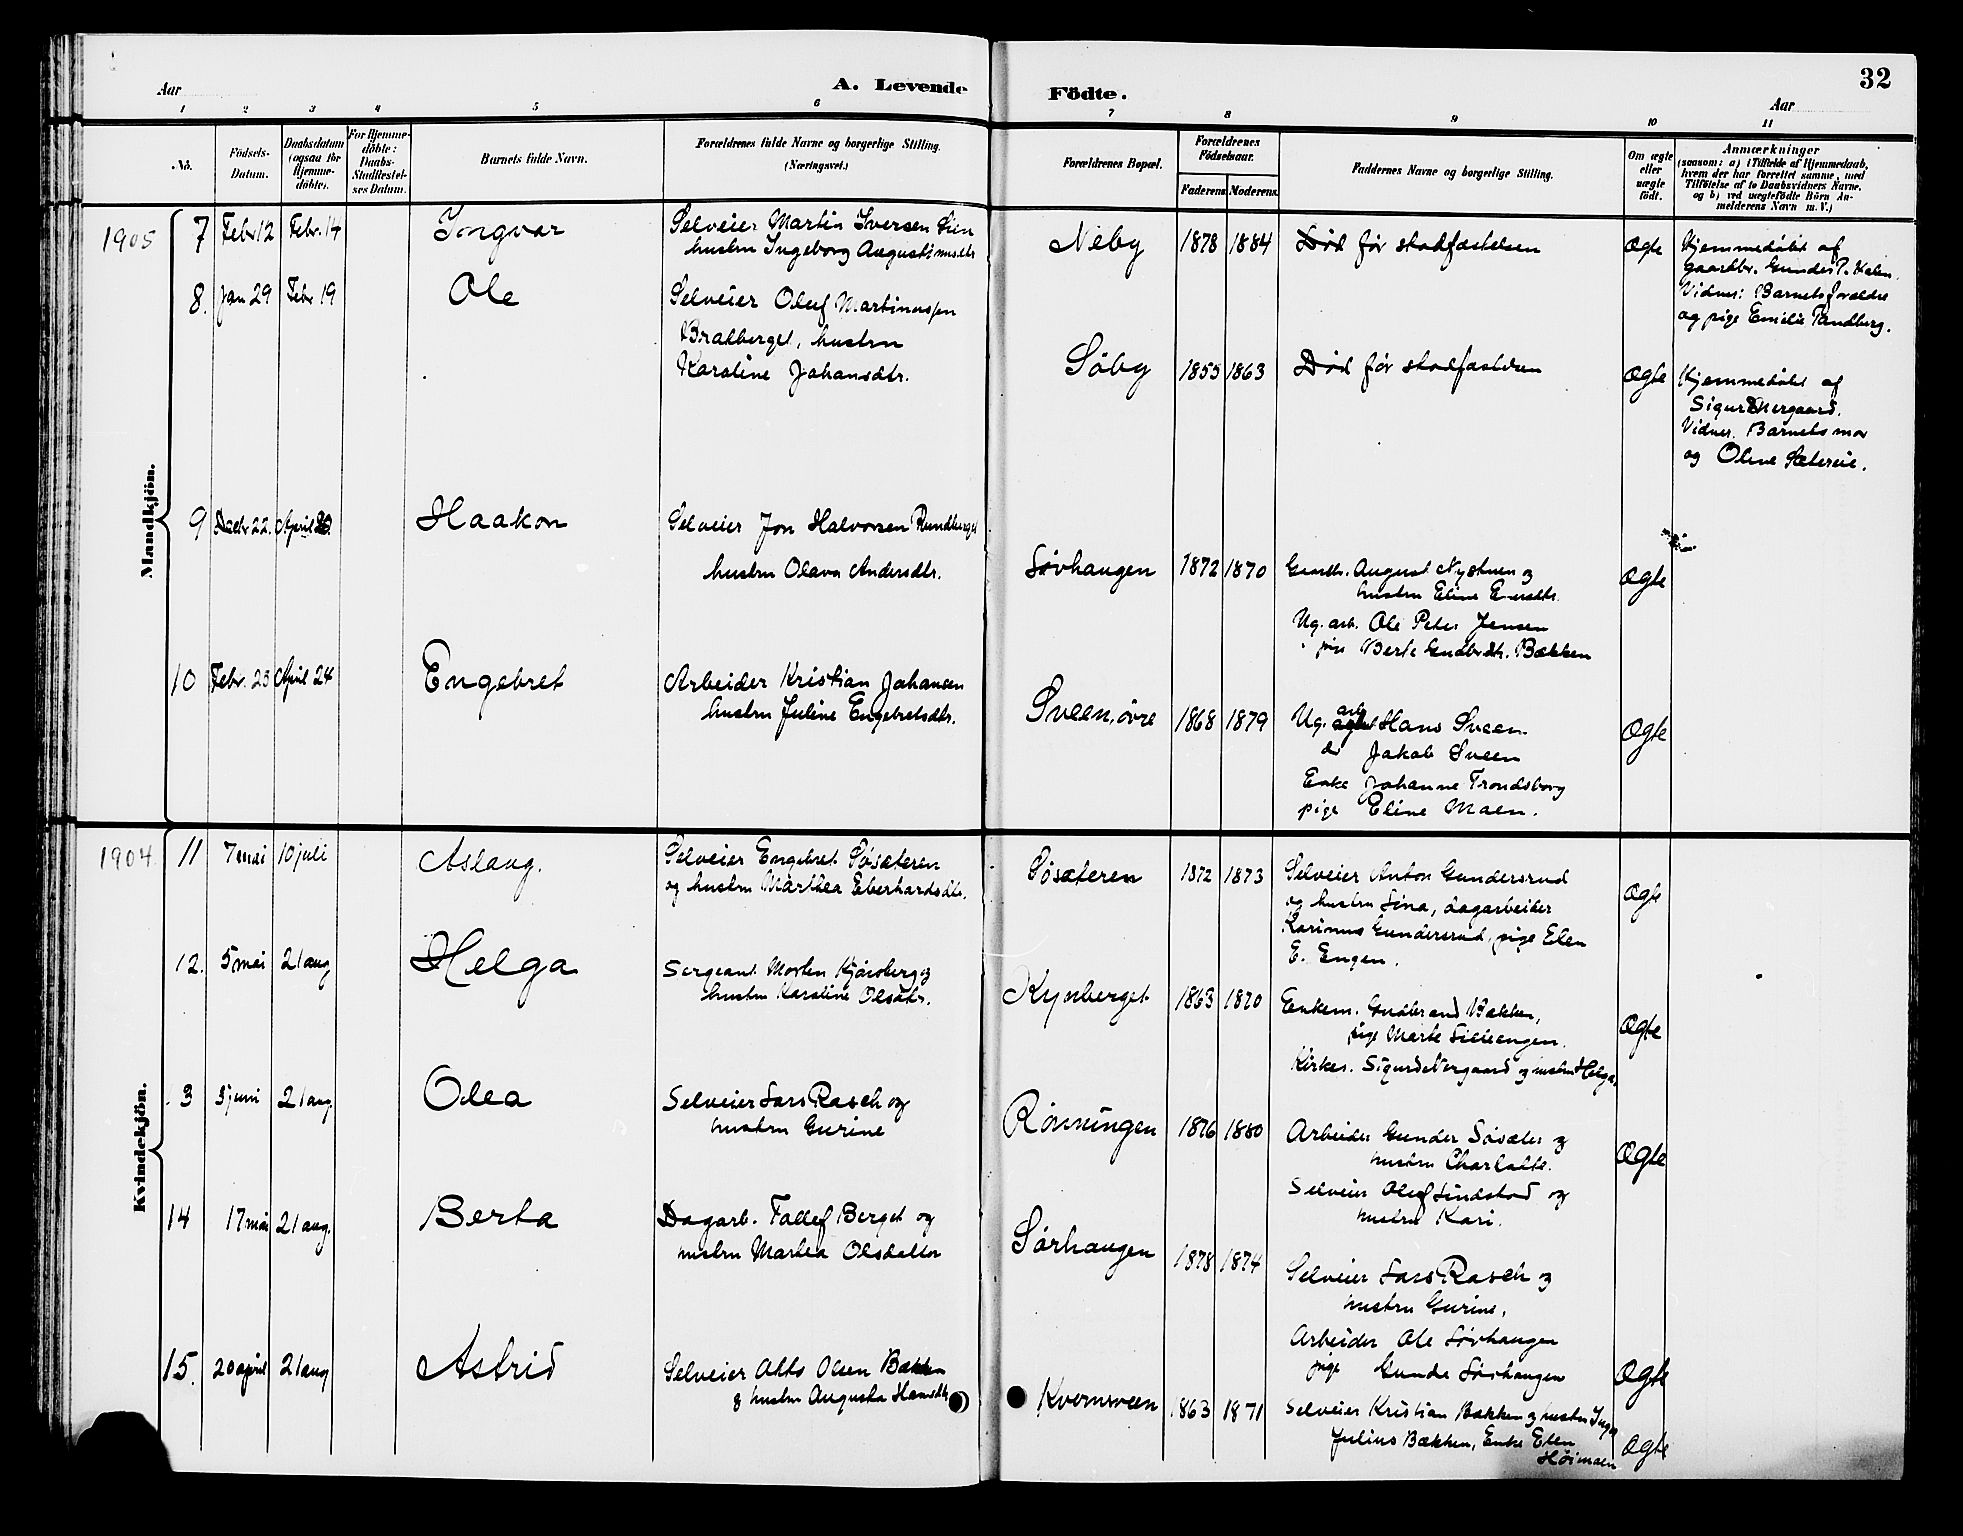 Aar
A. Levende
Födte.
Aar
32
1 2 3 4 5 6 7 8 9 10 11
No.
Födsels-
Datum.
Daabsdatum
(ogsaa for
Hjemme-
döbte).
For Hjemme-
döbte:
Daabs-
Stadfæstel-
ses Datum.
Barnets fulde Navn.
Forældrenes fulde Navne og borgerlige Stilling.
(Næringsvei.)
Forældrenes Bopæl.
Forældrenes
Födselsaar.
Faderens
Moderens.
Faddernes Navne og borgerlige Stilling.
Om ægte
eller
uægte
födt.
Anmærkninger
(saasom: a) i Tilfælde af Hjemmedaab,
hvem der har forrettet samme, med
Tilföielse af to Daabsvidners Navne,
og b) ved uægtefödte Börn An-
melderens Navn m. V.)
Mandkjön.
1905
7 Febr 12 Febr. 14 Ingvar
Selveier Martin Iversen
hustru Ingeborg Augustinusdtr
Neby 1878 1884 Død før stadfæstelsen Ægte
Hjemmedøbt af
gaardbr. Gunder P.
Vidner: Barnets forældre
og pige Emelie
8. Jan 29 Febr 19 Ole
Selveier Oluf Martinussen
Bratberget, hustru
Karoline Johansdtr.
Søby 1855 1863 Død før stadfæstelsen Ægte
Hjemmedøbt af
Sigurd Nergaard.
Vidner. Barnets mor
og Oline Sætereie.
9 22. April Haakon
Selveier Jon Halvorsen Rundberget
hustru Olava Andersdtr.
Sørhaugen 1872 1870
Gaardbr. August Nystuen og
hustru Eline
Ug. arb. Ole Peter Jensen
pige Berte Gudbrdtr. Bækken
Ægte
10 Febr. 25 April 24 Engebret
Arbeider Kristian Johansen
hustru Juline Engebretsdtr.
Sveen, øvre 1868 1879
Ug. arb Hans Sveen
do Jakob Sveen
Enke Johanne Trondsborg
pige Eline Moen.
Ægte
Kvindekjön.
1904
11 7 mai 10 juli Aslaug.
Selveier Engebret Søsæteren
og hustru Marthea Eberhardsdtr.
Søsæteren 1872 1873
Selveier Anton Gundersrud
og hustru Lina, dagarbeider
Karinus Gundersrud, pige Elen
E. Engen.
Ægte
12. 5 mai 21 aug Helga
Sergeant Morten Kjøisberg og
hustru Karoline Olsdtr.
Kynberget 1863 1870
Enkem. Gudbrand Bækken,
pige Marte Lilleengen.
Kirkes. Sigurd Nergaard og hustru Helga.
Ægte
13 5 juni 21 aug Olea
Selveier Lars Rasch og
hustru Gurine
Rønningen 1876 1880
Arbeider Gunder Søsæter og
hustru Charlotte.
Selveier Oluf Lindstad og
hustru Kari.
Ægte
14 17 mai 21 aug. Berta
Dagarb. Tollef Berget og
hustru Martea Olsdatter
Sørhaugen 1878 1874
Selveier Lars Rasch og
hustru Gurine,
Arbeider Ole Sørhaugen
pige Gunda Sørhaugen
Ægte
15. 20 april 21 aug Astrid
Selveier Otto Olsen Bækken
& hustru Augusta Hansdtr
Kvernveen 1863 1871
Selveier Kristian Bækken og hustru Inga
Julius Bækken, Enke Elen
Høimoen
Ægte